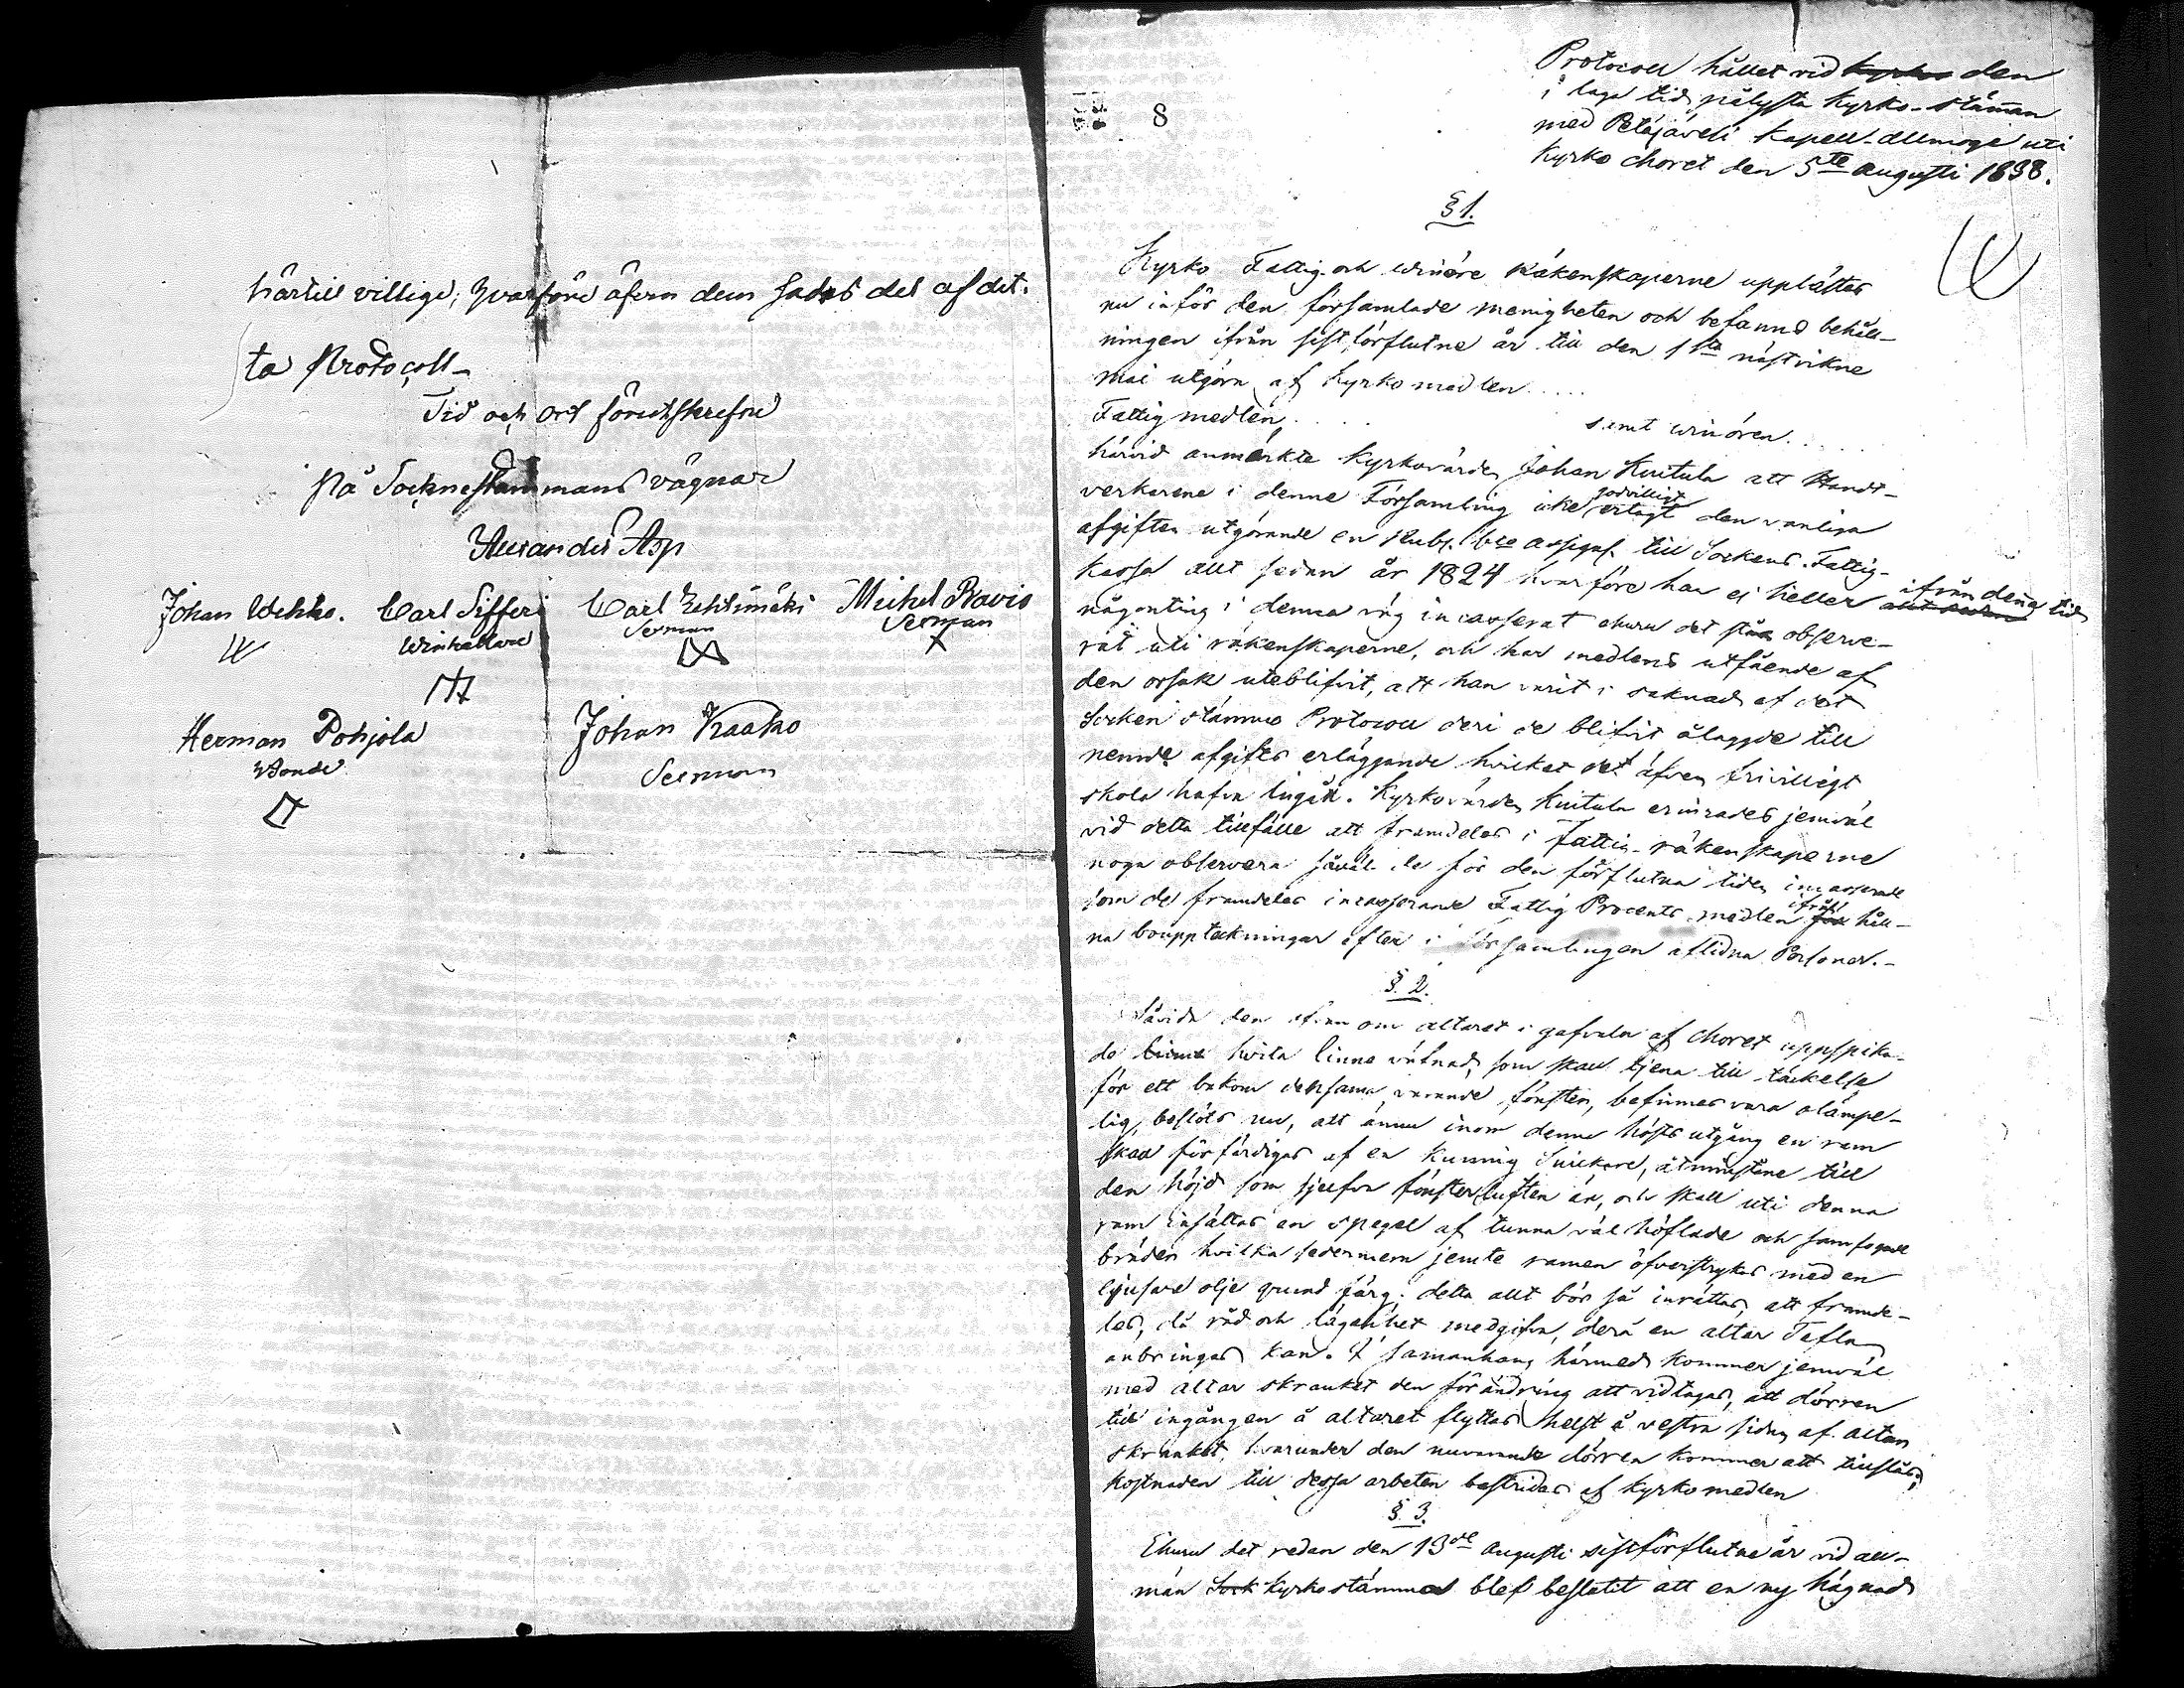 härtill villige; hvarföre äfven dem gades del af det-
ta Protocoll_
Tid och ort förutskrefne
På Socknestammans vägnar
Alexander Asp
Johan Wehko. Carl Sifferi Carl Michel Ravio
Winhållare Sexman Sexman
Herman Pohjola Johan Kaako
Bonde Sexman
8
Protocoll hållet vid den
i laga tid pålysta Kyrko-stämman
med Petäjävesi Kapell-Allmoge uti
Kyrko choret den 5te Augusti 1838.
§ 1.
Kyrko Fattig och winöre Räkenskaperne upplättes
nu inför den församlade menigheten och befanns behåll-
ningen ifrån sistförflutne år till den 1sta nästvikne
Maii utgöra af Kyrko medlen.....
Fattig medlen..... samt winören...
härvid anmärkte Kyrkovärden Johan Kuitula att Handt-
verkarene i denne Församling icke godvilligt erlagt den vanliga
afgiften utgörande en Rubl. Bco assigns. till Sockens Fattig-
Kassa allt sedan år 1824 hvarföre han ej heller ifrån denna tid
någonting i denna väg incasserat ehuru det står observe-
rat uti räkenskaperne, och har medlens utfående af
den orsak uteblifvit, att han varit i saknad af det
Socken stämmo Protocoll deri de blifvit ålaggde till
nemnde afgifts erläggande hvilket de äfven frivilligt
skola hafva ingått. Kyrkovärden Kuitula erinrades jemväl
vid detta tillfälle att framdeles i Fattig-räkenskaperne
noga observera såväl de för den förflutna tiden incasserade
som de framdeles incasserande Fattig Procents medlen ifrån håll-
na bouppteckningar efter i församlingen aflidna Personer.-
§. 2.
Såvida den ofvan om altaret i gafveln af choret uppspika-
de hvita linne väfnad, som skall tjena till täckelse
för ett bakom densamma varande fönster, befinnes vara olämpe-
lig, beslöts nu, att ännu inom denne hösts utgång en ram
skall förfärdigas af en kunnig Snickare, åtminstone till
den höjd som sjelfva fönster luften är, och skall uti denna
ram insättas en spegel af tunna väl höflade och samfogade
bräden hvilka sedermera jemte ramen öfverstrykes med en
ljusare olje grund färg. detta allt bör så inrättas, att framde-
les, då råd och lägenhet medgifva, derå en altar Tafla
anbringas kan. I samanhang härmed kommer jemväl
med altar skranket den förändring att vidtagas, att dörren
till ingången å altaret flyttas helst å vestra sidan af altar
skranket, hvarunder den nuvarande dörren kommer att tillslås;
Kostnaden till dessa arbeten bestrides af Kyrko medlen
§. 3.
Ehuru det redan den 13de Augusti sistförflutne år vid all-
män Kyrkostämma blef beslutit att en ny hägnad